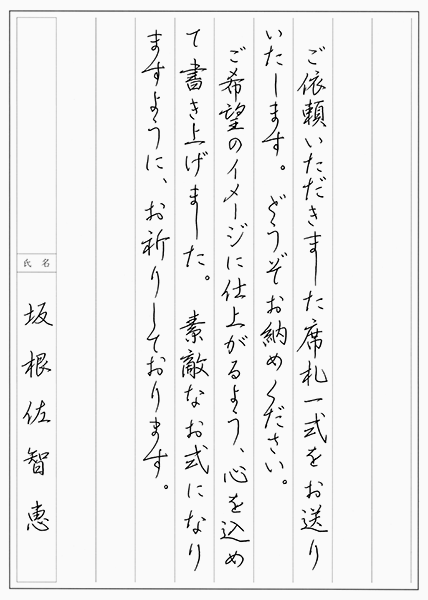 ご依頼いただきました席札一式をお送り
いたします。どうぞお納めください。
ご希望のイメージに仕上がるよう、心を込め
て書き上げました。素敵なお式になり
ますように、お祈りしております。
氏名
坂根佐智恵